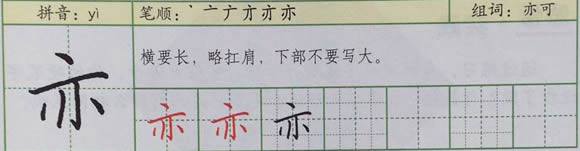 拼音：yì 笔顺：丶亠亣亣亦亦 组词：亦可
横要长，略扛肩，下部不要写大。
亦 亦 亦 亦